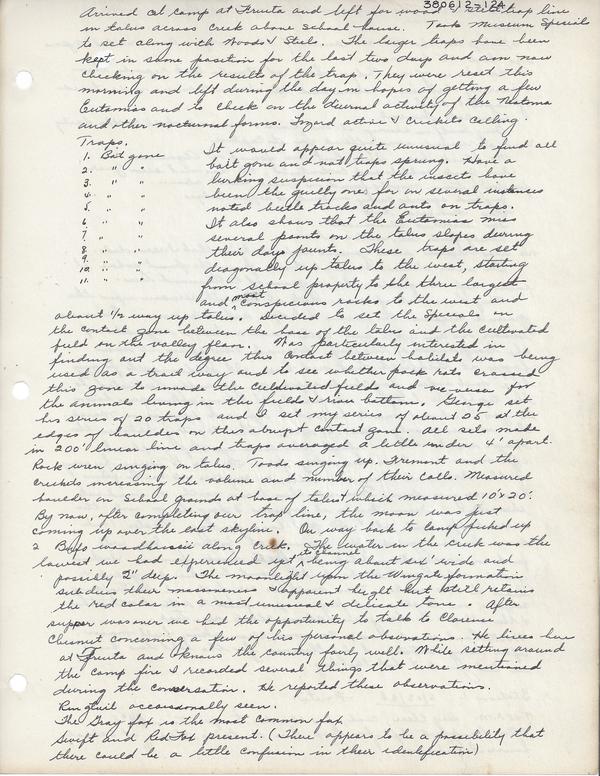 380612-12A
Arrived at camp at Fruita and left for wood & steel trap line
in talus across creek above School house. Took Museum Specials
to set along with Woods & Steels. The larger traps have been
kept in same position for the last two days and am now
checking on the results of the trap. They were reset this
morning and left during the day in hopes of getting a few
Eutamias and to check on the diurnal activity of the Neotoma
and other nocturnal forms. Lizard active & Crickets calling.
Traps.
1. Bait gone
2. " "
3. " "
4. " "
5. " "
6. " "
7 " "
8 " "
9. " "
10. " "
11. " "
It would appear quite unusual to find all
bait gone and not traps sprung. Have a
lurking suspicion that the insects have
been the guilty one for on several instances
noted beetle tracks and ants on traps.
It also shows that the Eutamias miss
several points on the talus slopes during
their days jaunts. These traps are set
diagonally up talus to the west, starting
from school property to the three largest
and most conspicious rocks to the west and
about 1/2 way up talus. Decided to set the Specials on
the contact zone between the base of the talus and the cultivated
field on the valley floor. Was particularly interested in
finding out the degree this contact between habitats was being
used as a trail way and to see whether pack rats crossed
this zone to invade the cultivated fields and vice versa for
the animals living in the fields & river bottom. George set
his series of 20 traps and I set my series of about 25 at the
edges of boulders on this abrupt contact zone. All sets made
in 200' linear line and traps averaged a little under 4' apart.
Rock wren singing on talus. Toads singing up Fremont and the
crickets increasing the volume and number of their calls. Measured
boulder on School grounds at base of talus which measured 10'x20'.
By now, after completing our trap line, the moon was just
coming up over the east skyline. On way back to camp picked up
2 Bufo woodhousii along creek. The water in the creek was the
lowest we had experienced yet its channel being about six' wide and
possibly 2" deep. The moonlight upon the Wingate formation
subdues their massiveness & apparent height but still retains
the red color in a most unusual & delicate tone. After
supper was over we had the opportunity to talk to Clarence
Chesnut concerning a few of his personal observations. He lives here
at Fruita and knows the country fairly well. While setting around
the camp fire I recorded several things that were mentioned
during the conversation. He reported these observations.
Ringtail occasionally seen.
The Gray fox is the most common fox
Swift and Red Fox present. (There appears to be a possibility that
there could be a little confusion in their identification)